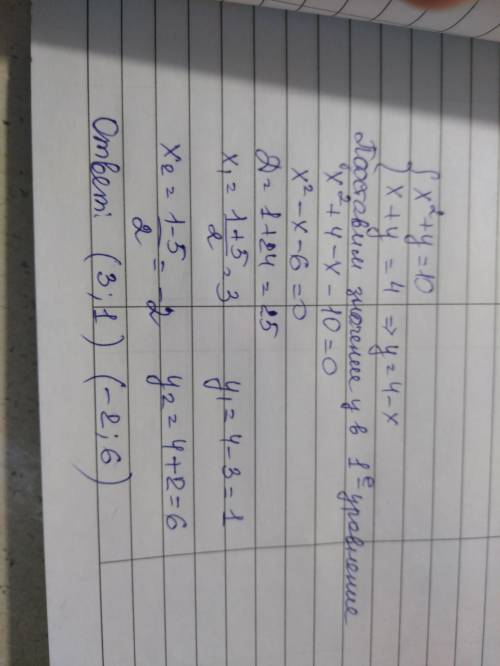 { x²+y=10
{ x+y=4 ⇒ y=4-x
Поставим значение y в 1ᵉ уравнение
x²+4-x-10=0
x²-x-6=0
D=1+24=25
x₁=(1+5)/2=3 y₁=4-3=1
x₂=(1-5)/2=-2 y₂=4+2=6
Ответ: (3;1) (-2;6)